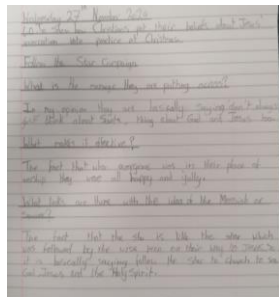 Wednesday 27th November 2020
LO: show how Christians put their beliefs about Jesus'
incarnation into practice at Christmas.
Follow the Star Campaign
What is the message they are putting across?
In my opinion they are basically saying don't always
just think about Santa, thing about God and Jesus too.
What makes it effective?
The fact that who everyone was in their place of
worship they were all happy and jolly.
What links are there with the idea of the Messiah or
Saviour?
The fact that the star is like the one which
was followed by the wise men on their way to Jesus so
it is basically saying follow the star to church to see
God Jesus and the Holy Spirit.